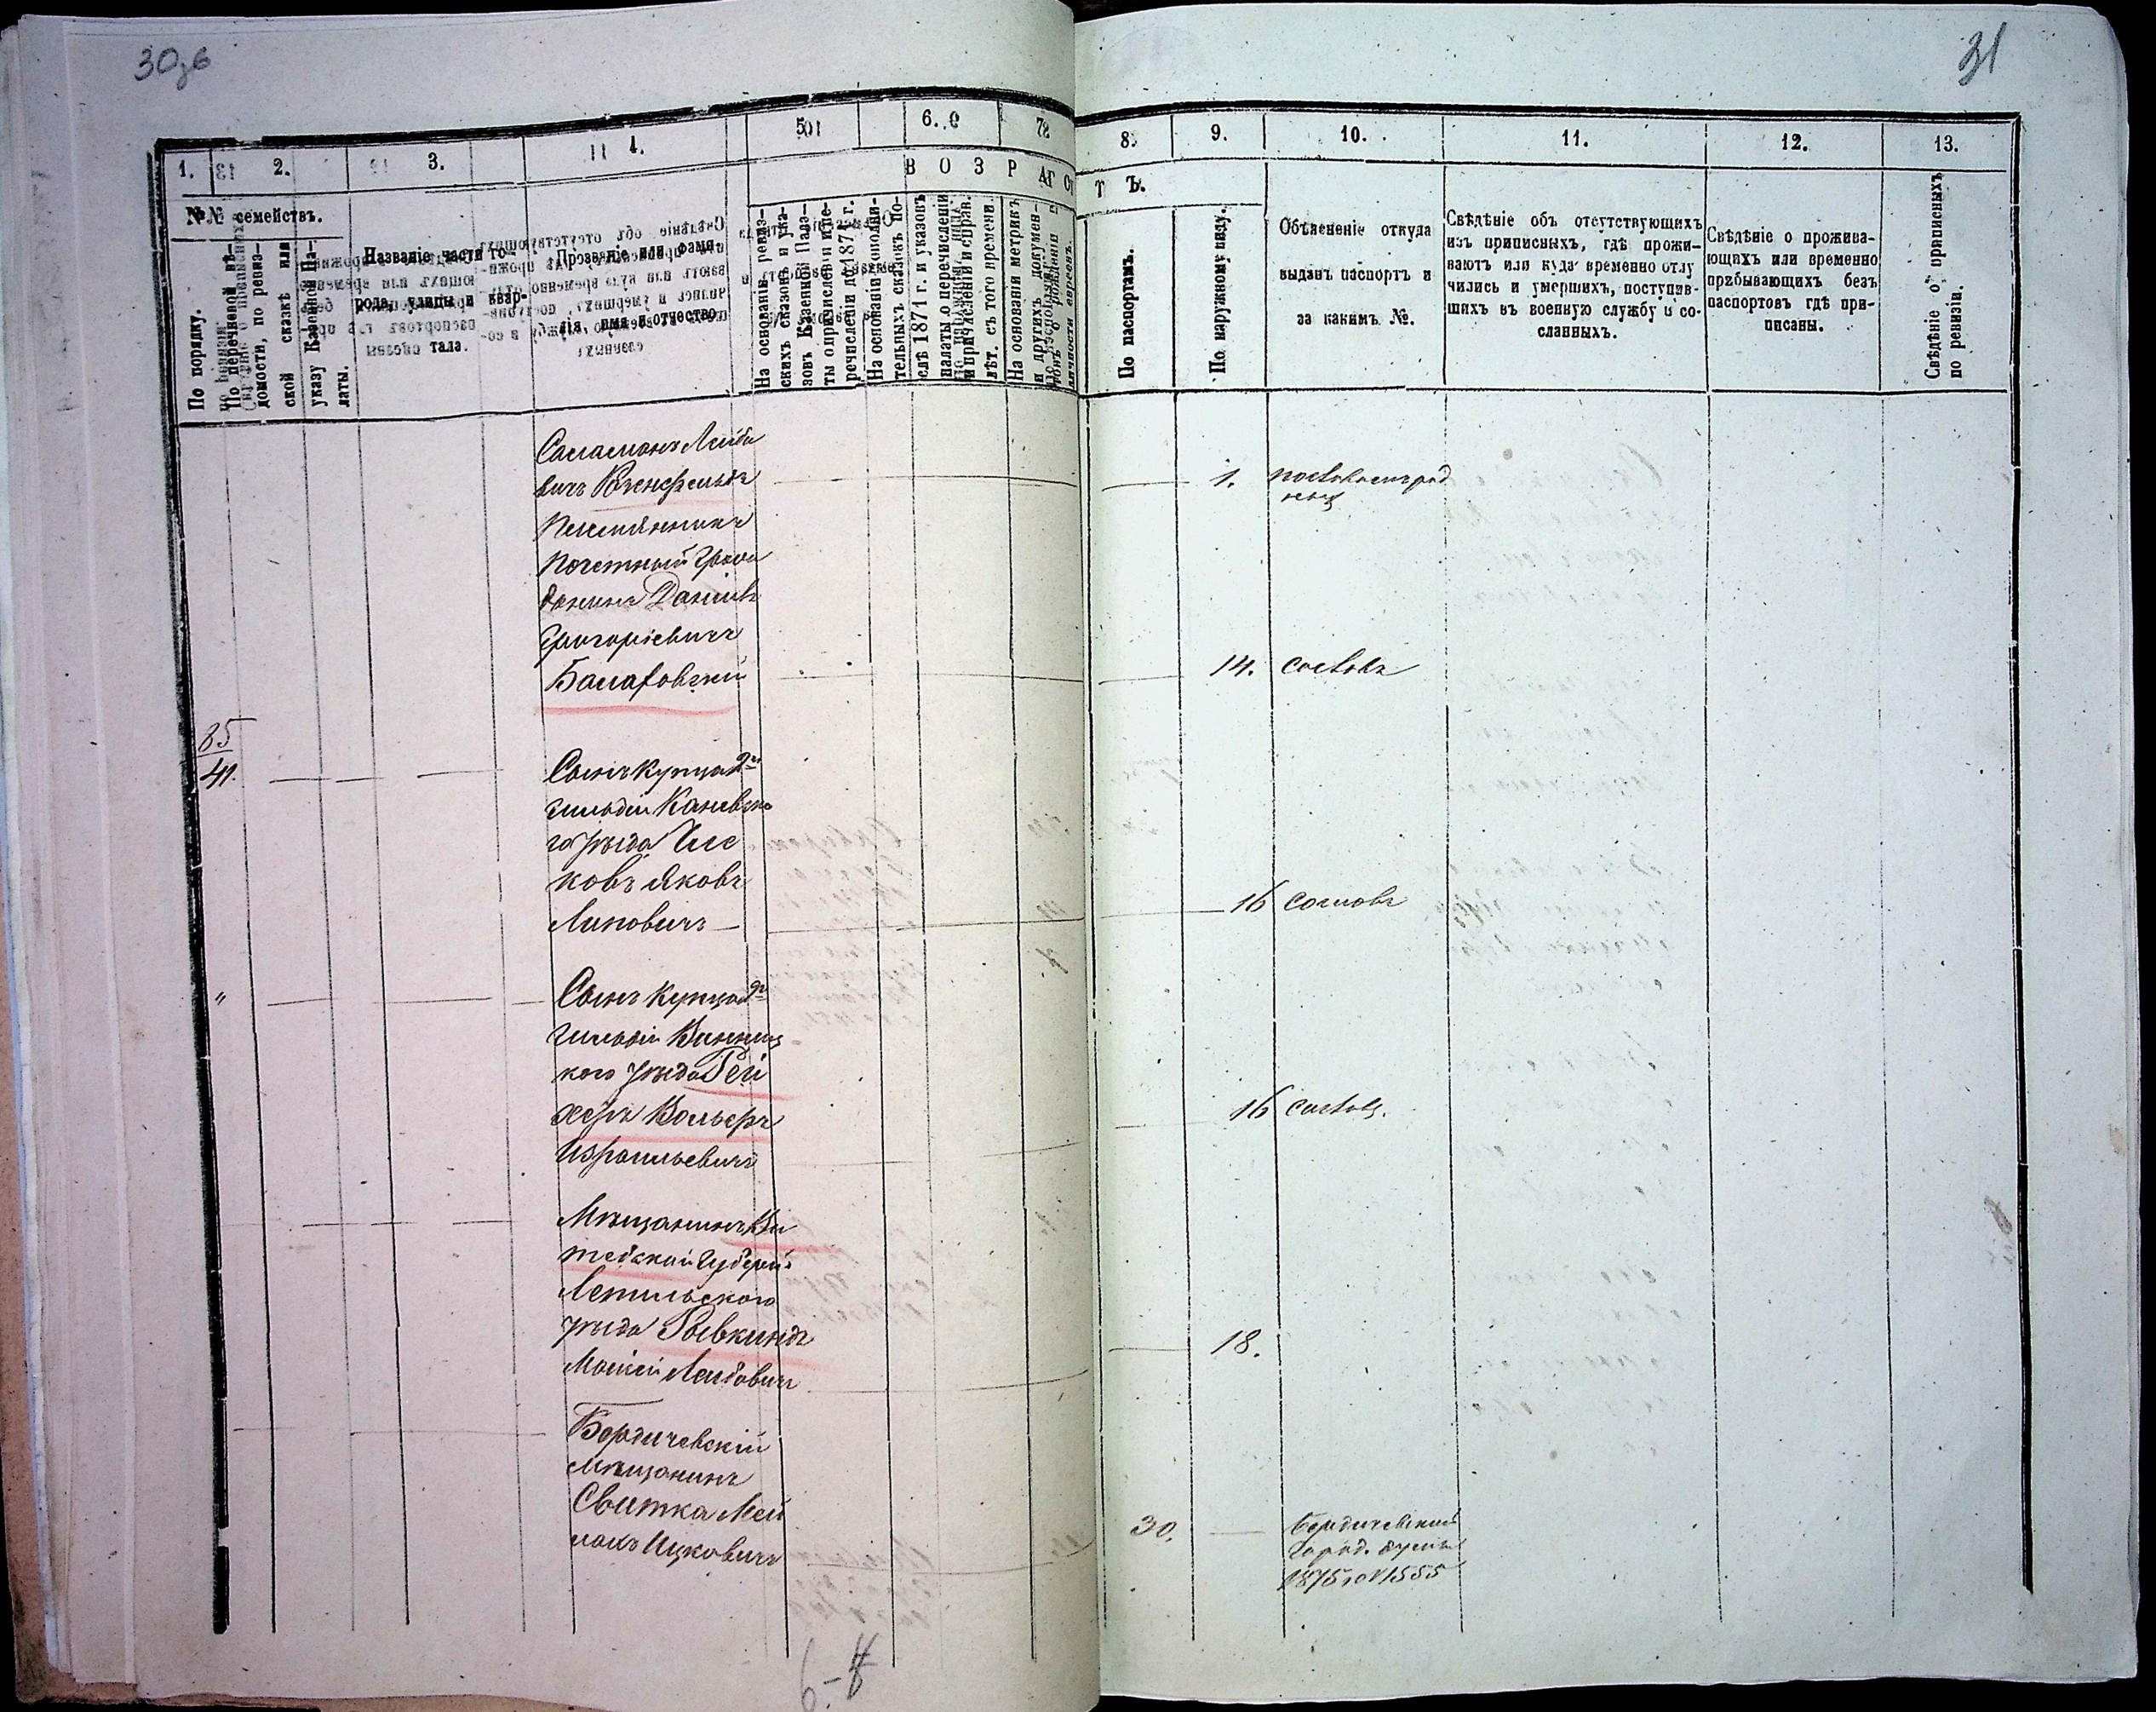 30об
31
1.
2.
3.
4.
5.
6.
7.
8.
9.
10.
11.
12.
13.
В О З Р А С Т Ъ.
№№ семействъ.
По порядку.
По перечневой вѣ-
домости, по ревиз-
ской сказкѣ или
указу Казенной Па-
латы.
Названіе части го-
рода, улицы и квар-
тала.
Прозваніе или фами-
лія, имя и отчество.
На основаніи ревиз-
скихъ сказокъ и ука-
зовъ Казенной Пала-
ты о причисленіи и пе-
речисленіи до 1871 г.
На основаніи дополни-
тельныхъ сказокъ по-
слѣ 1871 г. и указовъ
палаты о перечисленіи
и причисленіи и справ.
лѣт. съ того времени.
На основаніи метрикъ
и другихъ докумен-
По паспортамъ.
По наружному виду.
Объясненіе откуда
выданъ паспортъ и
за какимъ №.
Свѣдѣніе объ отсутствующихъ
изъ приписныхъ, гдѣ прожи-
ваютъ или куда временно отлу
чились и умершихъ, поступив-
шихъ въ военную службу и со-
сланныхъ.
Свѣдѣніе о прожива-
ющихъ или временно
прибывающихъ безъ
паспортовъ гдѣ при-
писаны.
Свѣдѣніе о приписныхъ
по ревизіи.
Саламонъ Лейбо
вичъ
1.
Племянникъ
Почетный Граж
данинъ Даніилъ
Григоріевичъ
Балаховскій
14.
85
41.
Сынъ купца 2й
гильдіи Каневска
го уѣзда Чес
ковъ Яковъ
Липовичъ
16
"
Сынъ купца 2й
гильдіи Винниц
кого уѣзда Рей
херъ Вольфъ
Израильевичъ
16
Мѣщанинъ Ви
тебской Губерніи
Лепельского
уѣзда Рывкиндъ
Моисей Лейбовичъ
18.
Бердичевскій
Мѣщанинъ
Свитка Мей
лахъ Ицковичъ
30.
Бердичевской
Город. думы
1875 го № 1555
6.-